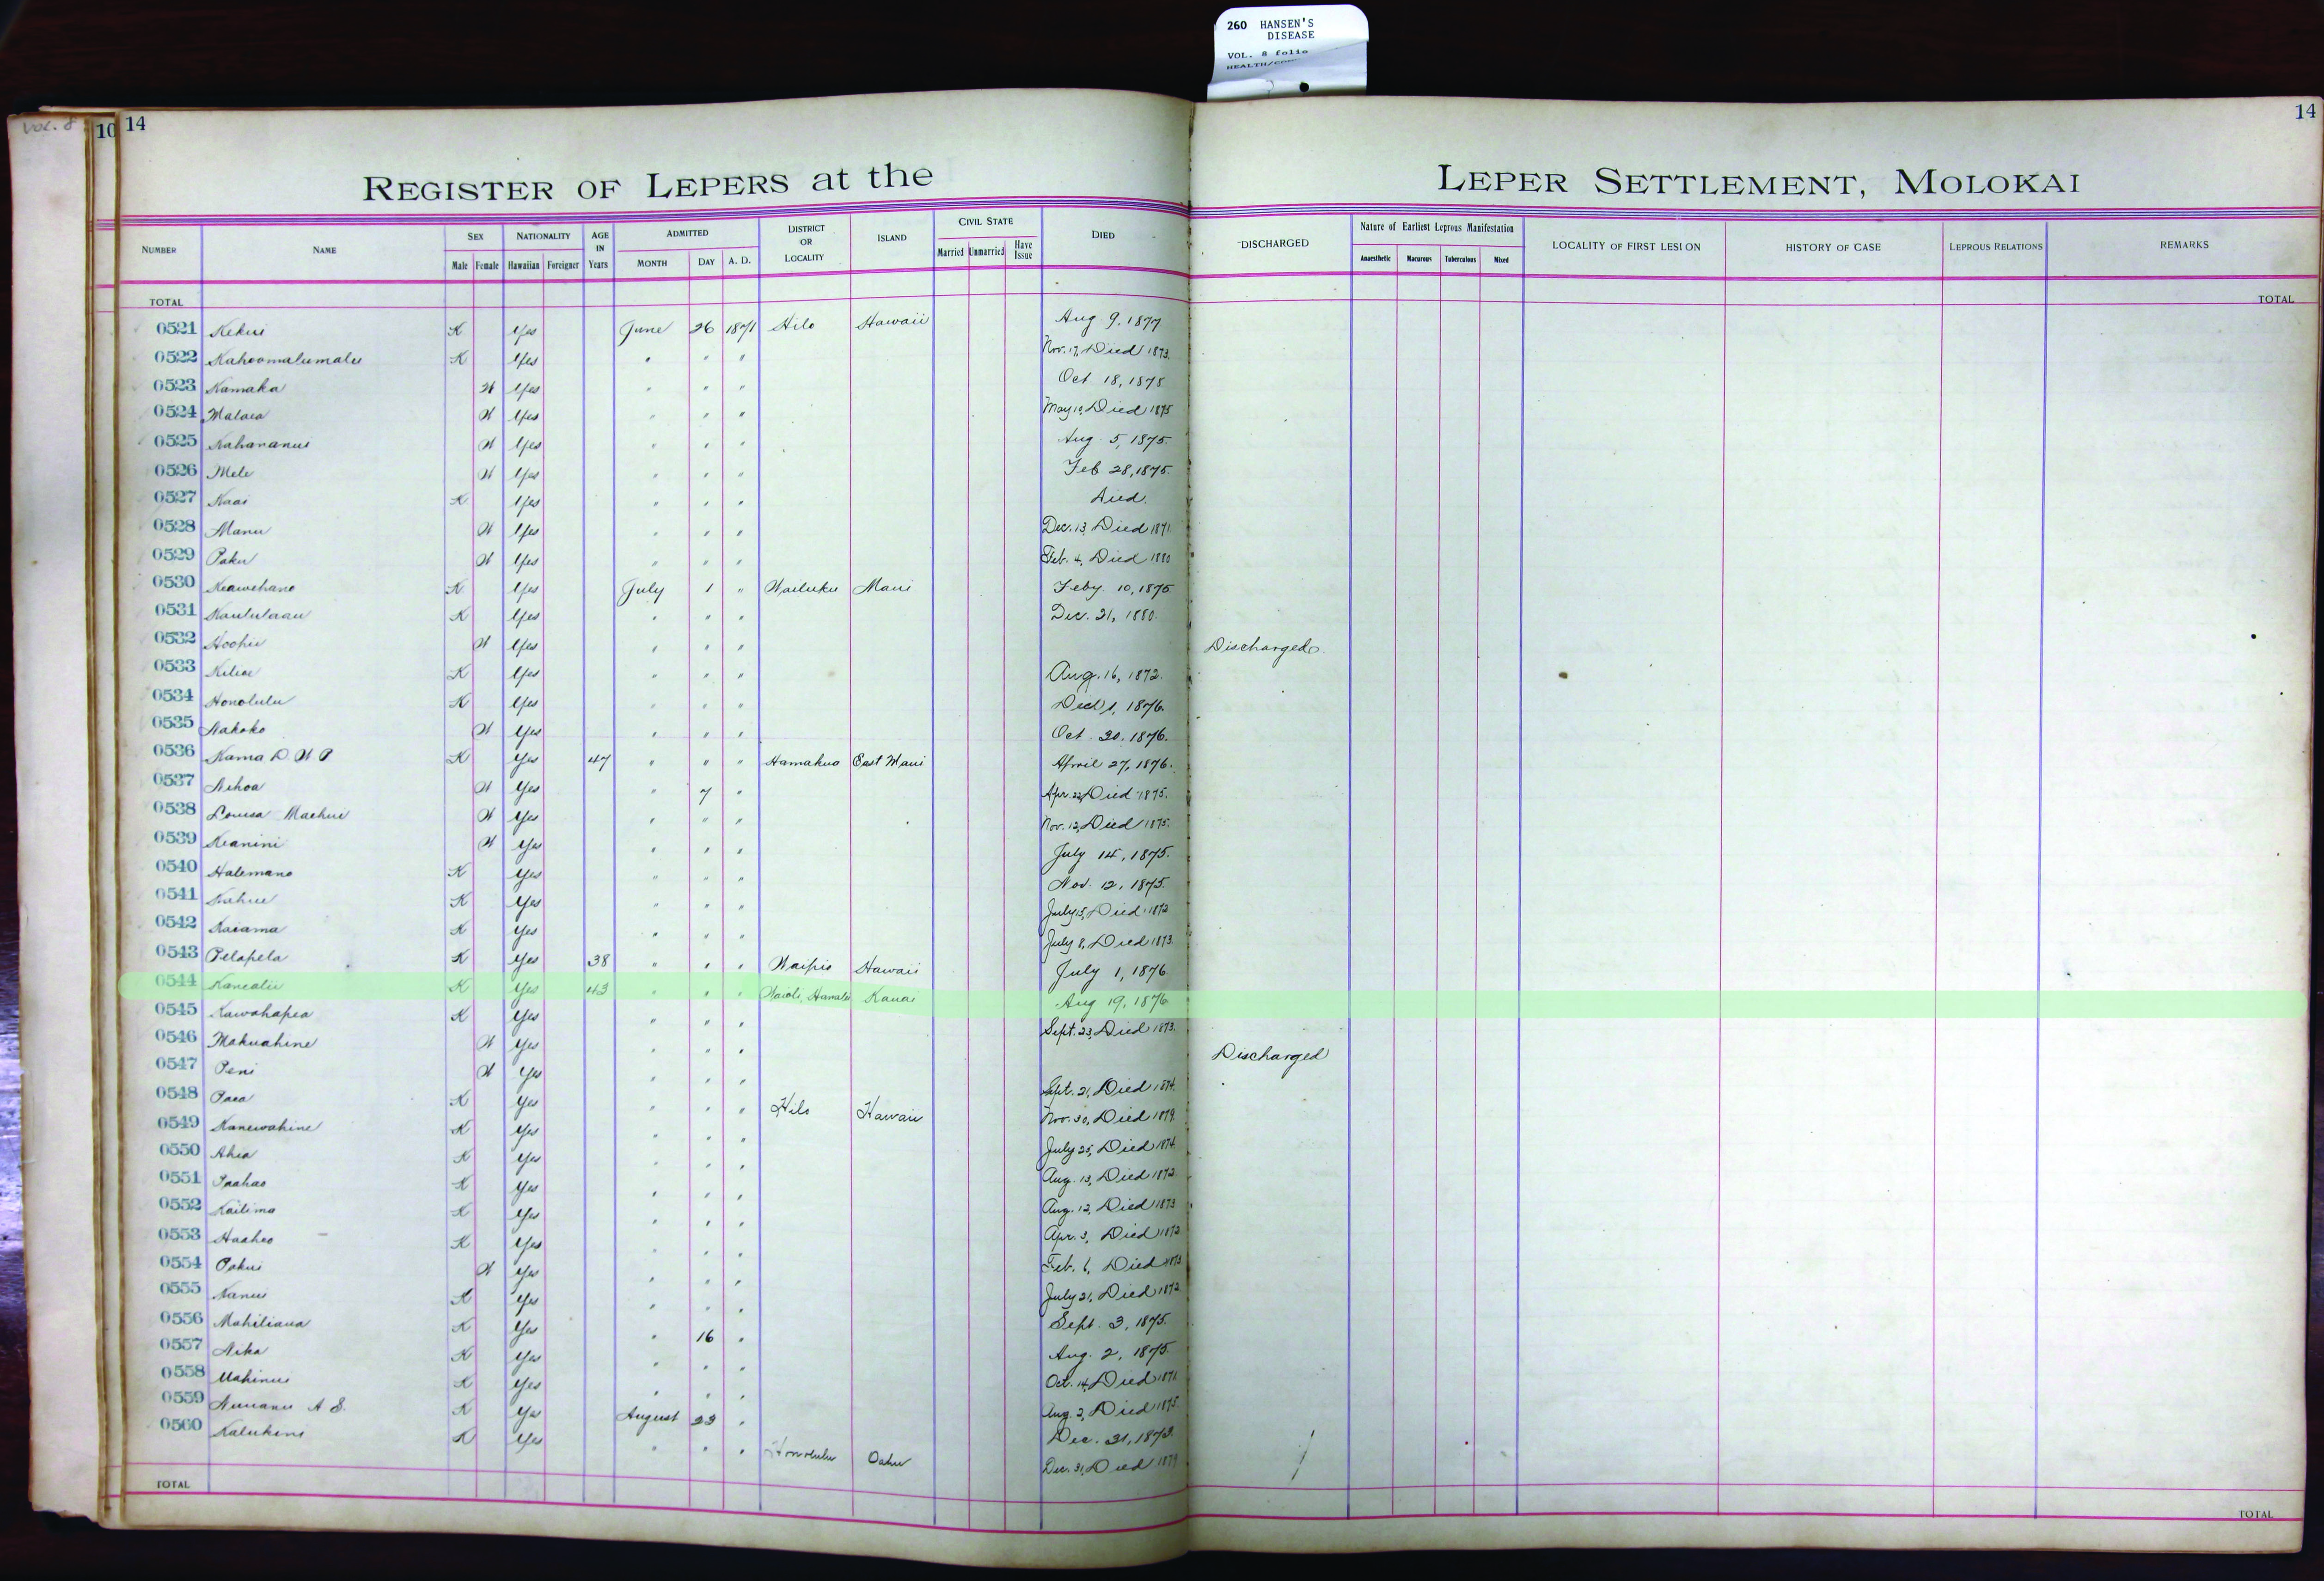 260 HANSEN'S
DISEASE
VOL. 8 folio
VOL. 8
10 14
14
REGISTER OF LEPERS at the LEPER SETTLEMENT, MOLOKAI
NUMBER NAME SEX Male Female NATIONALITY Hawaiian Foreigner AGE IN Years ADMITTED MONTH DAY A. D. DISTRICT OR LOCALITY ISLAND CIVIL STATE Married Unmarried Have Issue DIED DISCHARGED Nature of Earliest Leprous Manifestation Anaesthetic Macurous Tuberculous Mixed LOCALITY OF FIRST LESION HISTORY OF CASE LEPROUS RELATIONS REMARKS
TOTAL TOTAL
0521 Kekui K Yes June 26 1871 Hilo Hawaii Aug 9, 1877
0522 Kahoomalumalu K Yes " " " Nov. 17, Died 1873.
0523 Kamaka W Yes " " " Oct 18, 1875
0524 Malaea W Yes " " " May 10, Died 1875
0525 Kahananui W Yes " " " Aug. 5, 1875.
0526 Mele W Yes " " " Feb 28, 1875.
0527 Kaai K Yes " " " Died.
0528 Manu W Yes " " " Dec. 13, Died 1871
0529 Paku W Yes " " " Feb. 4, Died 1880
0530 Keawehano K Yes July 1 " Wailuku Maui Feby 10, 1875
0531 Kaululaau K Yes " " " Dec. 21, 1880.
0532 Hoohii W Yes " " " Discharged.
0533 Kiliae K Yes " " " Aug. 16, 1872.
0534 Honolulu K Yes " " " 1, 1876.
0535 Nakoko W Yes " " " Oct. 20, 1876.
0536 Kama D. W P K Yes 47 " " " Hamakua East Maui April 27, 1876.
0537 Nihoa W Yes " 7 " Apr. 22, Died 1875.
0538 Louisa Maehui W Yes " " " Nov. 12, Died 1875.
0539 Keanini W Yes " " " July 14, 1875.
0540 Halemano K Yes " " " Nov. 12, 1875.
0541 Kahue K Yes " " " July 15, Died 1872
0542 Kaiama K Yes " " " July 8, Died 1873.
0543 Pelapela K Yes 38 " " " Waipio Hawaii July 1, 1876
0544 Kanealii K Yes 43 " " " Waioli, Hanalei Kauai Aug 19, 1876
0545 Kawahapea K Yes " " " Sept. 23, Died 1873.
0546 Makuahine W Yes " " " Discharged
0547 Peni W Yes " " " Sept. 21, Died 1874.
0548 Paea K Yes " " " Hilo Hawaii Nov. 30, Died 1879.
0549 Kanewahine K Yes " " " July 25, Died 1874.
0550 Ahia K Yes " " " Aug. 13, Died 1872.
0551 Paahao K Yes " " " Aug. 12, Died 1873
0552 Kailima K Yes " " " Apr. 3, Died 1872
0553 Haaheo K Yes " " " Feb. 6, Died 1873
0554 Pakui W Yes " " " July 21, Died 1872
0555 Nanui K Yes " " " Sept. 3, 1875.
0556 Mahiliaua K Yes " 16 " Aug. 2, 1875.
0557 Nika K Yes " " " Oct. 14, Died 1871.
0558 Mahinui K Yes " " " Aug. 2, Died 1875.
0559 Nuuanu A S. K Yes August 23 " Dec. 31, 1873.
0560 Kalukini K Yes " " " Honolulu Oahu Dec. 31, Died 1879
TOTAL TOTAL